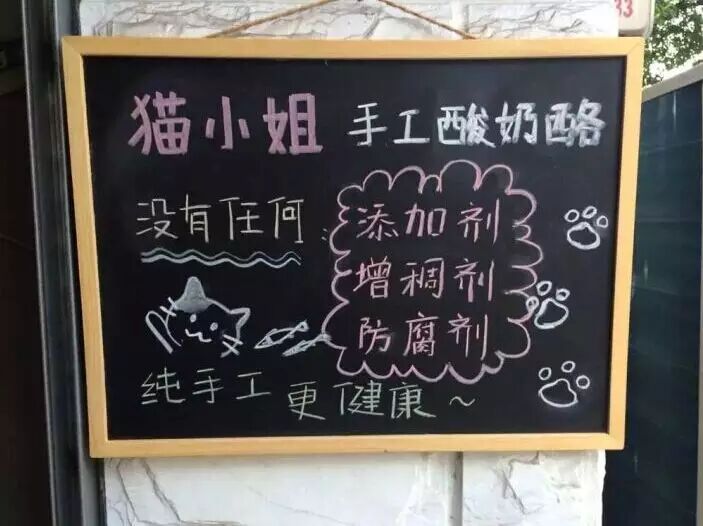 33
猫小姐 手工酸奶酪
没有任何:
添加剂
增稠剂
防腐剂
纯手工更健康~